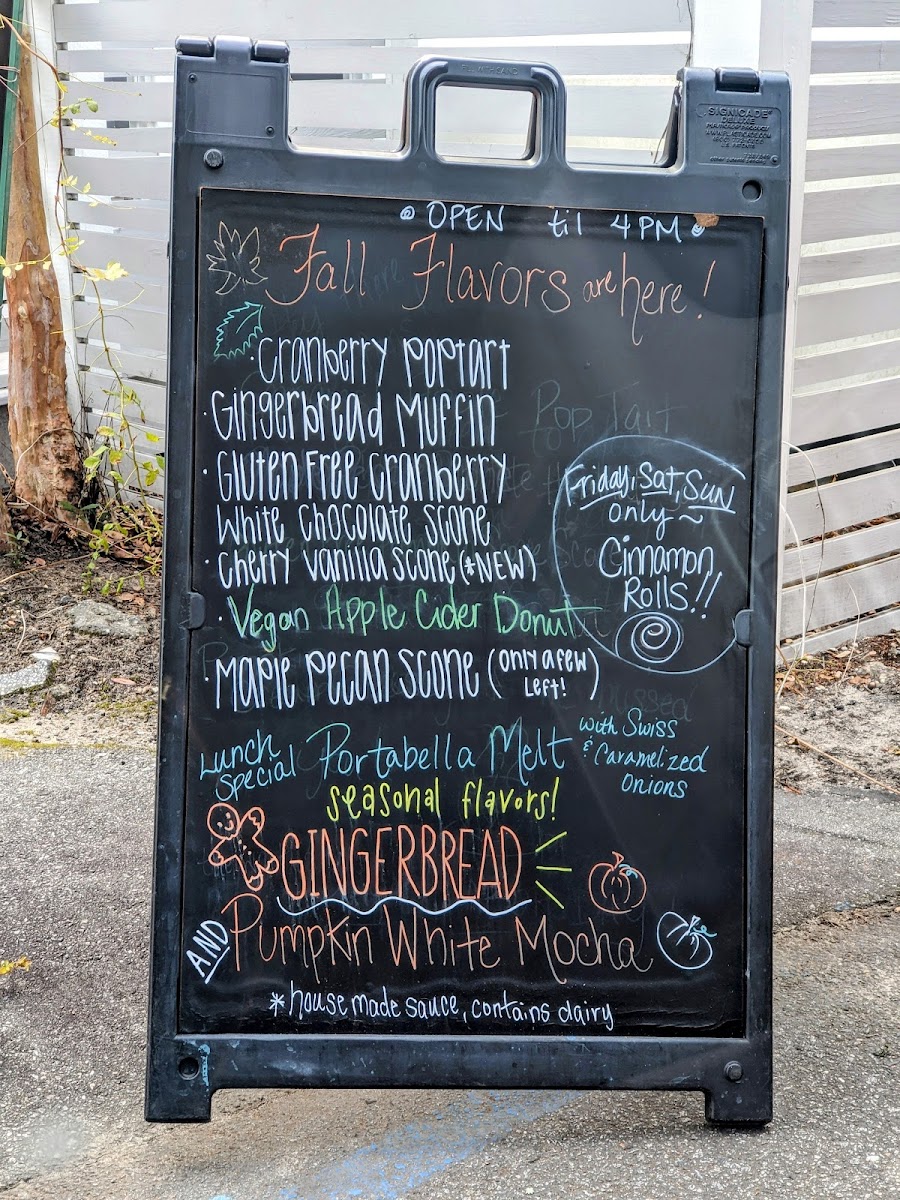 OPEN til 4PM
Fall Flavors are here!
· Cranberry Poptart
· Gingerbread Muffin
· Gluten Free Cranberry
White Chocolate Scone
· Cherry Vanilla Scone (*NEW)
· Vegan Apple Cider Donut
· Maple Pecan Scone (only a few
Left!)
Friday, Sat, Sun
only ~
Cinnamon
Rolls!!
Lunch
Special
Portabella Melt
with Swiss
& Caramelized
Onions
seasonal flavors!
GINGERBREAD
AND Pumpkin White Mocha
* house made sauce, contains dairy
SIGNICADE
DELUXE